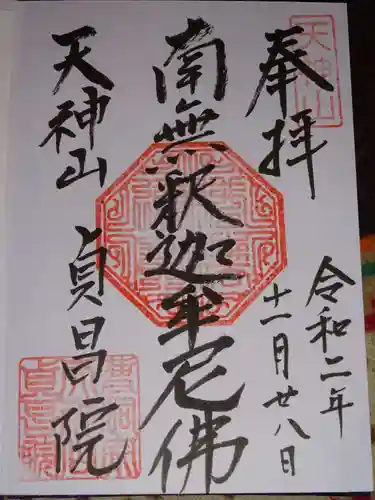 天神山
奉拝
令和二年
十一月廿八日
南無釈迦牟尼佛
天神山
貞昌院